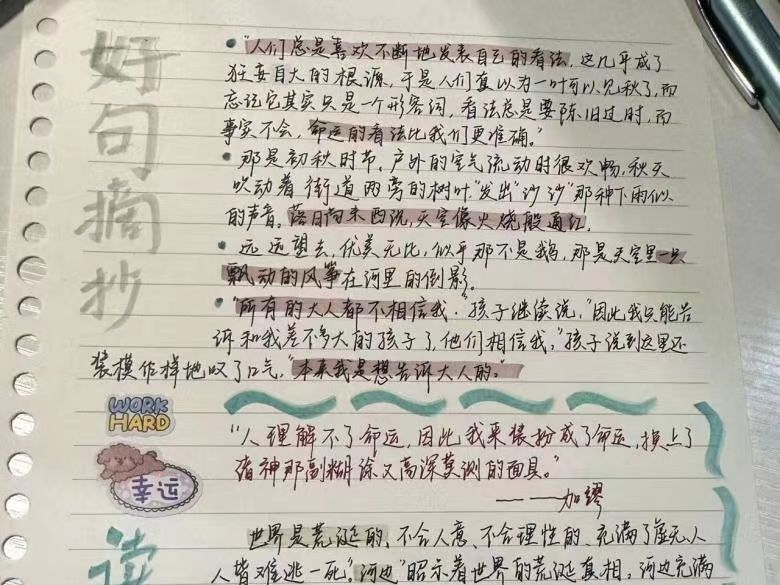 好句摘抄
“人们总是喜欢不断地发表自己的看法，这几乎成了
狂妄自大的根源，于是人们直以为一叶可以见秋了，而
忘记它其实只是一个形容词，看法总是要陈旧过时，而
事实不会，命运的看法比我们更准确。”
那是初秋时节，户外的空气流动时很欢畅，秋天
吹动着街道两旁的树叶，发出“沙沙”那种下雨似
的声音。落日尚未西沉，天空像火烧般通红，
远远望去，优美无比，似乎那不是鹅，那是天空里一只
飘动的风筝在河里的倒影。
“所有的大人都不相信我，”孩子继续说，“因此我只能告
诉和我差不多大的孩子了，他们相信我，”孩子说到这里还
装模作样地叹了口气，“本来我是想告诉大人的。”
WORK
HARD
幸运
“人理解不了命运，因此我来装扮成了命运，换上了
诸神那副糊涂又高深莫测的面具。”
——加缪
读
世界是荒诞的、不合人意、不合理性的、充满了虚无，人
人皆难逃一死，“河边”昭示着世界的荒诞真相，河边充满